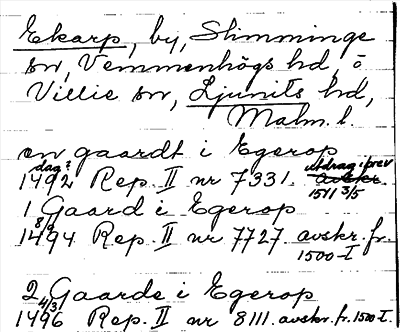 Ekarp, by, Slimminge
sn, Vemmenhögs hd, o
Villie sn, Ljunits hd,
Malm. l.
en gaardt i Egerop
dag? utdrag i prev
1492 Rep. II nr 7331. avskr.
1511 3/5
1 Gaard i Egerop
8/9
1494 Rep. II nr 7727 avskr. fr.
1500-t.
2 Gaarde i Egerop
4/3
1496 Rep. II nr 8111. avskr. fr. 1500-t.